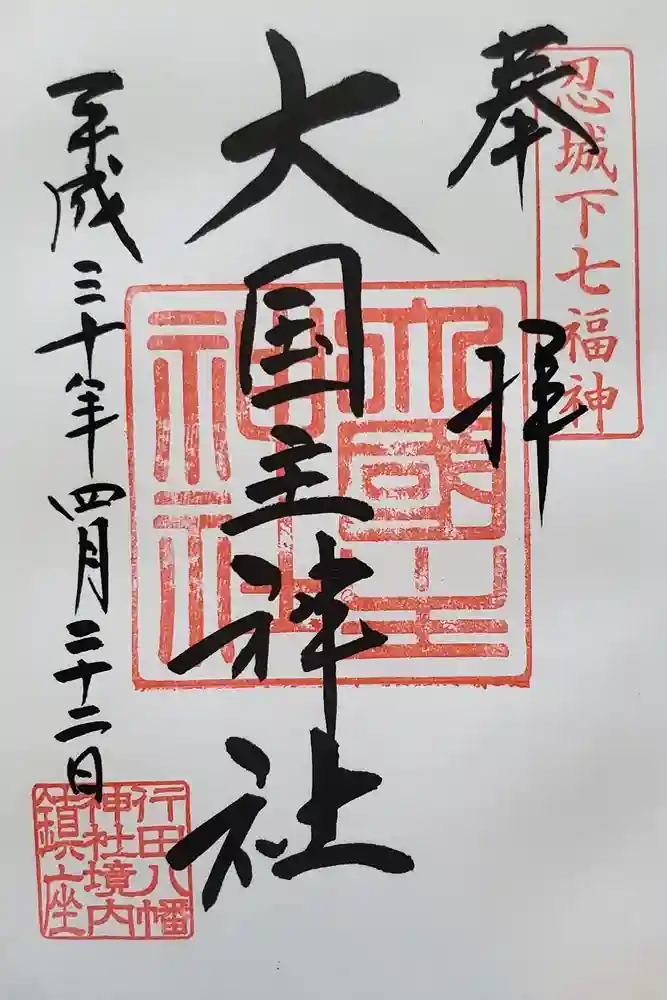 忍城下七福神
奉拝
大国主神社
大國主
神社
平成三十年四月二十二日
行田八幡
神社境内
鎮座